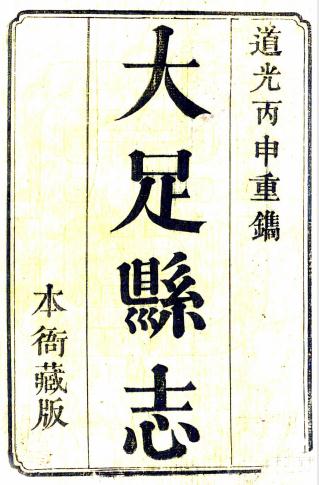 道光丙申重鐫
大足縣志
本衙藏版